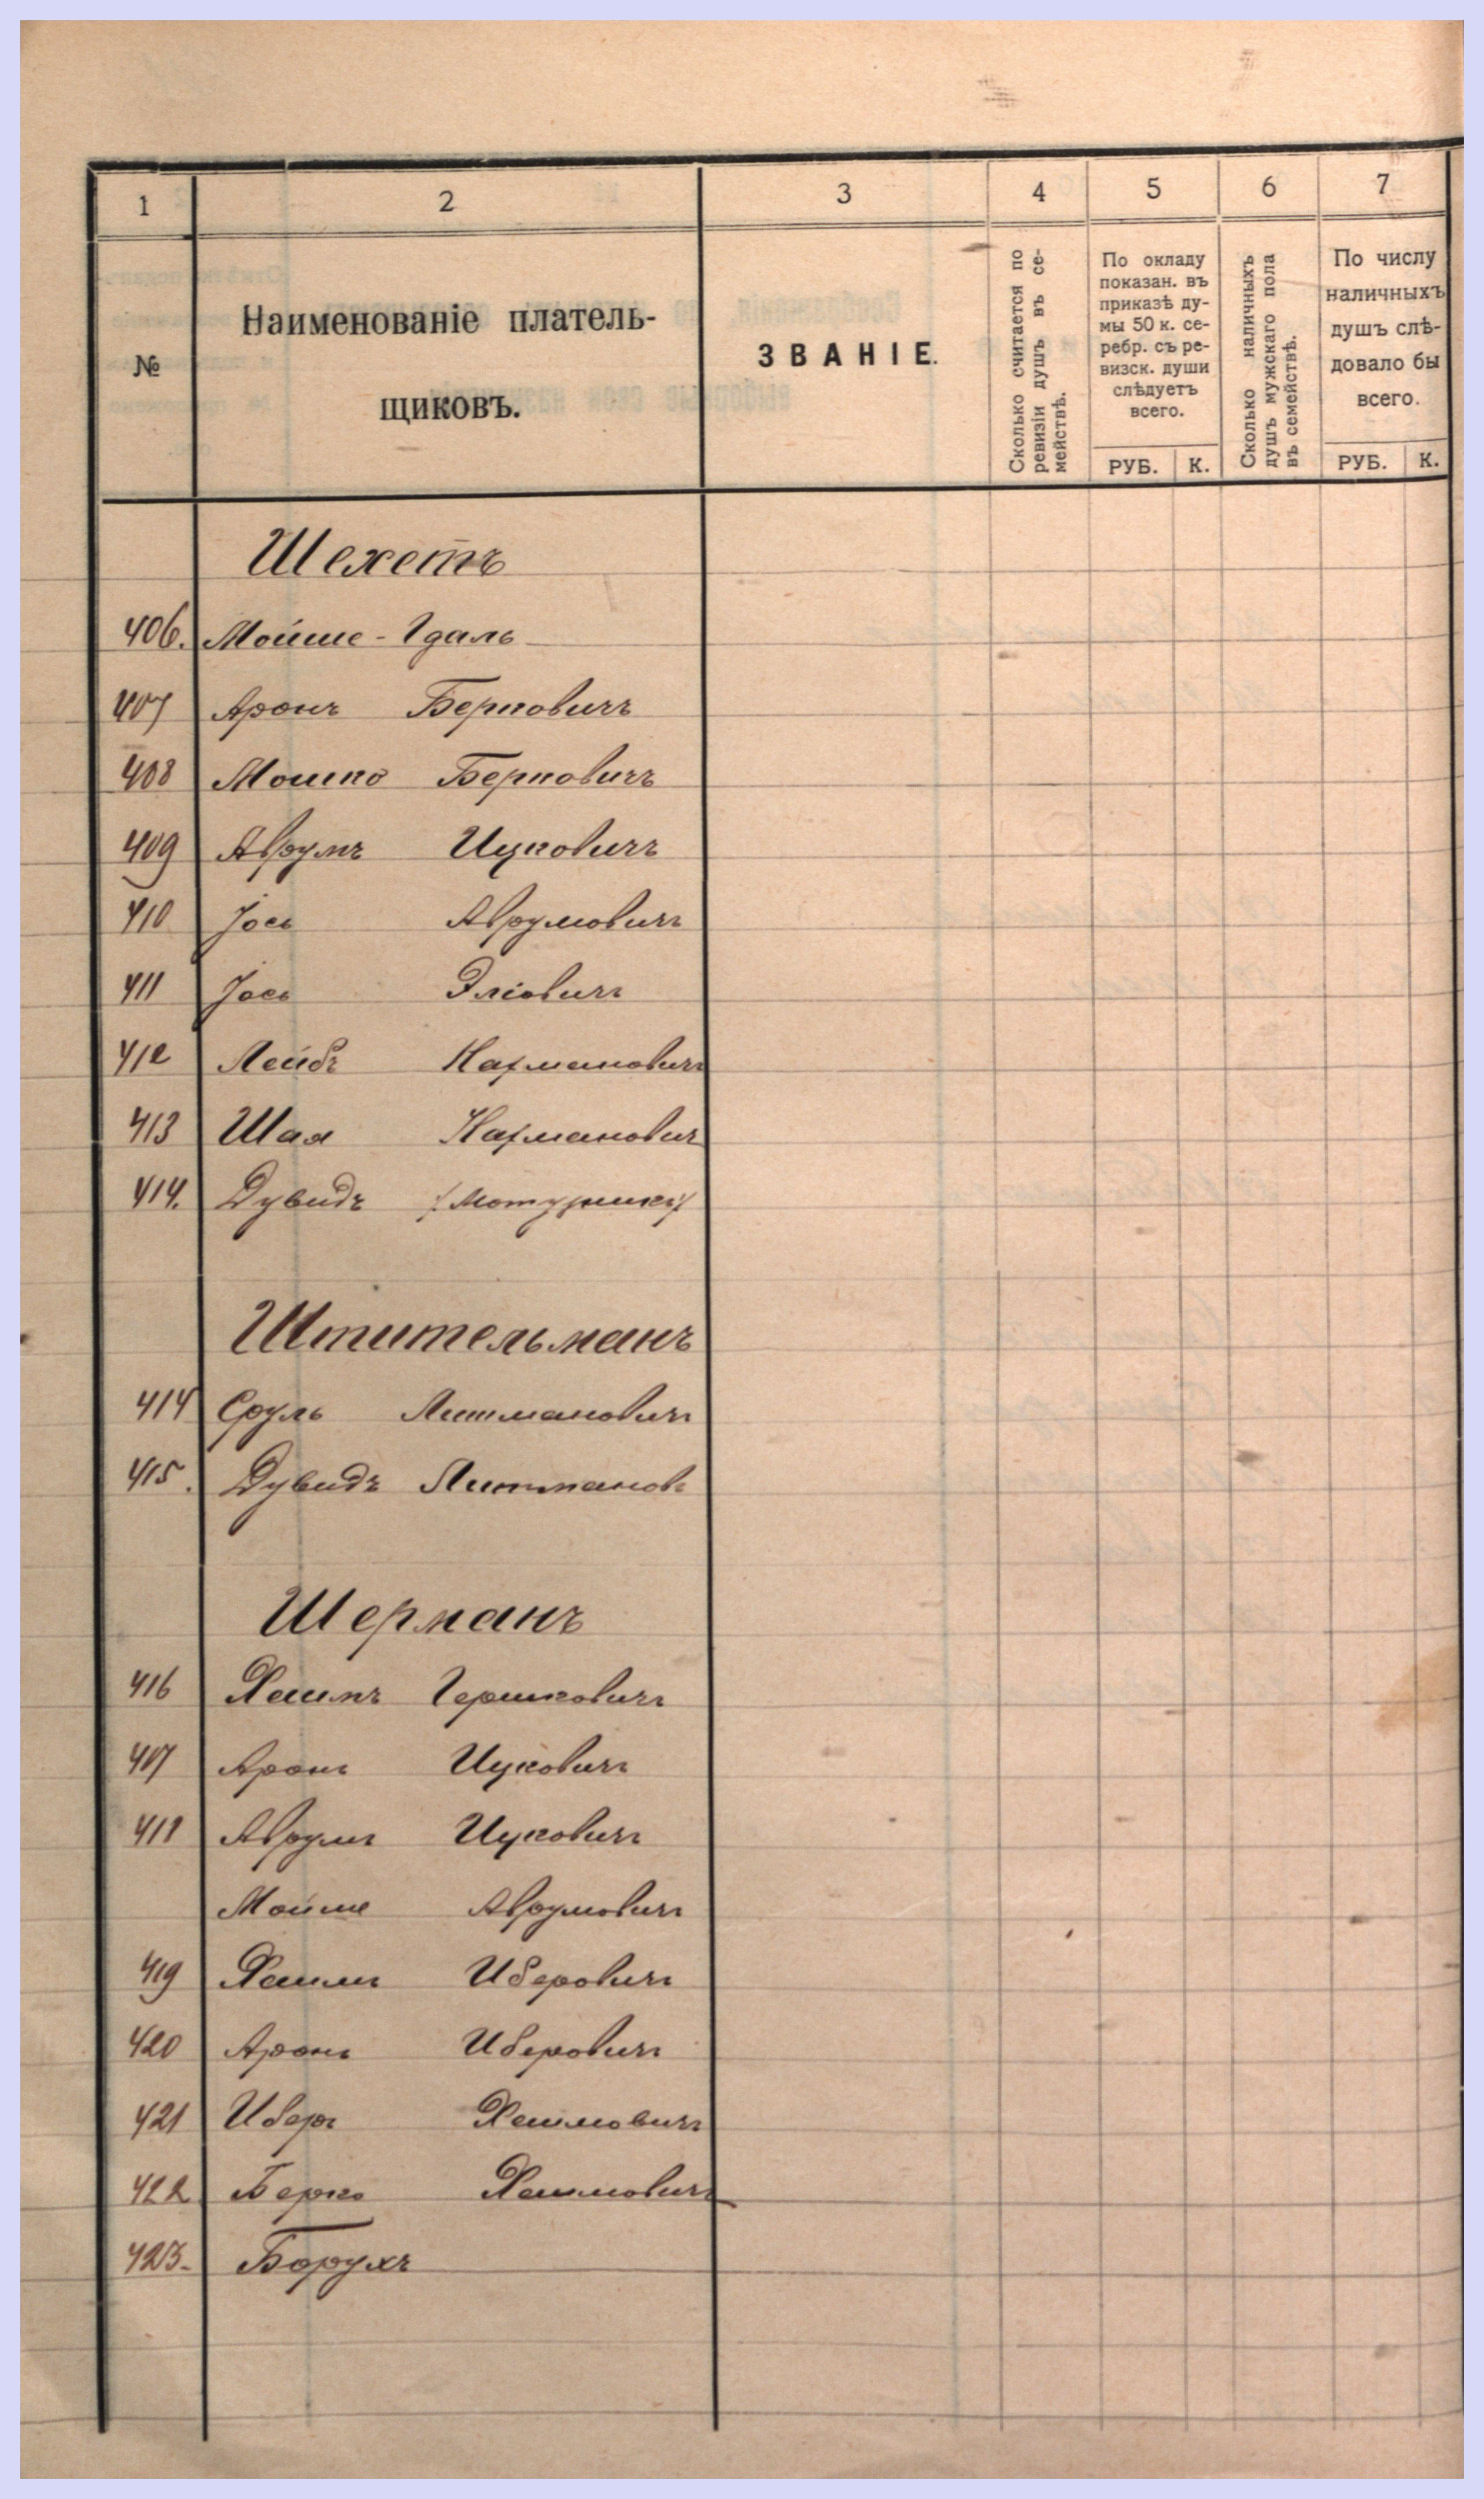 1 2 3 4 5 6 7
№
Наименованіе платель-
щиковъ.
ЗВАНІЕ.
Сколько считается по
ревизіи душъ въ се-
мействѣ.
По окладу
показан. въ
приказѣ ду-
мы 50 к. се-
ребр. съ ре-
визск. души
слѣдуетъ
всего.
РУБ. К.
Сколько наличныхъ
душъ мужскаго пола
въ семействѣ.
По числу
наличныхъ
душъ слѣ-
довало бы
всего.
РУБ. К.
Шехетъ
406. Мойше-Гдаль
407 Аронъ Берковичъ
408 Мошко Берковичъ
409 Аврумъ Ицковичъ
410 Іось Аврумовичъ
411 Іось Эліовичъ
412 Лейбъ Нахмановичъ
413 Шая Нахманович
414. Дувидъ
Штительманъ
414 Сруль Литмановичъ
415. Дувидъ Литмановъ
Шерманъ
416 Хаимъ Гершковичъ
417 Аронъ Ицковичъ
418 Аврумъ Ицковичъ
Мойше Аврумовичъ
419 Хаимъ Иберовичъ
420 Аронъ Иберовичъ
421 Иберъ Хаимовичъ
422 Берко Хаимовичъ
423. Борухъ